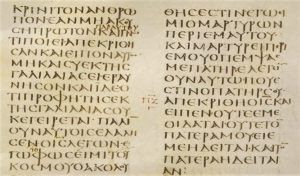 ΚΡΙΝΙΤΟΝΑΝΘΡΩ
ΠΟΝΕΑΝΜΗΑΚΟΥ
ϹΗΠΡΩΤΟΝ
ΤΙΠΟΙΕΙΑΠΕΚΡΙΘΗ
ϹΑΝΚΑΙΕΙΠΟΝΑΥΤΩ
ΜΗΚΑΙϹΥΕΚΤΗϹ
ΓΑΛΙΛΑΙΑϹΕΡΑΥ
ΝΗϹΟΝΚΑΙΙΔΕΟΤΙ
ΠΡΟΦΗΤΗϹΕΚ
ΤΗϹΓΑΛΙΛΑΙΑϹΟΥ
ΚΕΓΕΙΡΕΤΑΙΠΑΛΙ
ΟΥΝΑΥΤΟΙϹΕΛΑΛΗ
ϹΕΝΟΙϹΛΕΓΩΝΕ
ΚΟϹΜΟΥΟΑΚΟΛΟΥ
ΘΗϹΕϹΤΙΝΕΓΩΕΙ
ΜΙΟΜΑΡΤΥΡΩΝ
ΠΕΡΙΕΜΑΥΤΟΥ
ΚΑΙΜΑΡΤΥΡΕΙΠΕΡΙ
ΕΜΟΥΟΠΕΜΨΑϹ
ΜΕΠΑΤΗΡΕΛΕΓΟ
ΟΥΝΑΥΤΩΠΟΥΕ
ϹΤΙΝΟΠΑΤΗΡϹΟΥ
ΑΠΕΚΡΙΘΗΟΙϹΚΑΙ
ΕΙΠΕΝΟΥΤΕΕΜΕ
ΟΙΔΑΤΑΙΟΥΤΕΤΟ
ΠΑΤΕΡΑΜΟΥΕΙΕ
ΜΕΗΔΕΙΤΑΙΚΑΙΤΟ
ΠΑΤΕΡΑΗΔΕΙΤΑΙ
ΑΝ